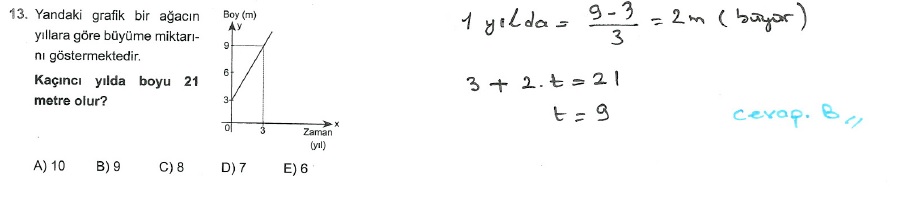 13. Yandaki grafik bir ağacın
yıllara göre büyüme miktarı-
nı göstermektedir.
Kaçıncı yılda boyu 21
metre olur?
Boy (m)
y
9
6
3
0
3
x
Zaman
(yıl)
A) 10 B) 9 C) 8 D) 7 E) 6
1 yılda = 9-3 / 3 = 2m (büyür)
3 + 2.t = 21
t = 9
cevap. B